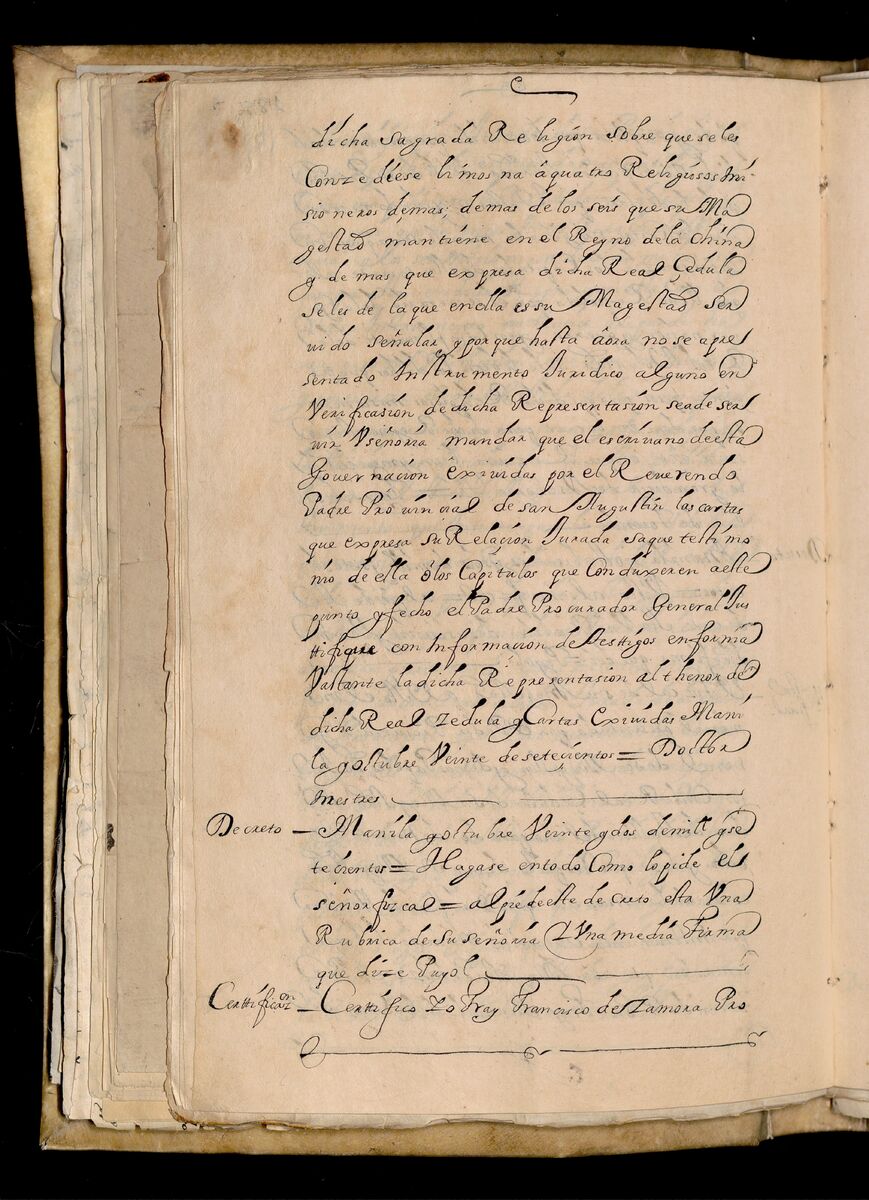 dicha sagrada Religion sobre que se les
Conzediese limosna â quatro Religiosos Mi-
sioneros demas, demas de los seis que su Ma
gestad mantiene en el Reyno de la china
y demas que expresa dicha Real Çedula
seles de la que en ella es su Magestad ser
uido señalar y porque hasta âora no se apre
sentado Instrumento Juridico alguno en
Verificasion de dicha Representasion seade ser
uir Vseñoria mandar que el escriuano de esta
Gouernacion exiuidas por el Reuerendo
Padre Prouincial de san Augustin las cartas
que expresa su Relacion Jurada saque testimo
nio de ella ô los Capitulos que Conduxeren a este
punto y fecho el Padre Procurador General Jus
ttifique con Informacion de Testtigos en forma
Vastante la dicha Representasion al thenor de
dicha Real zedula y Cartas Exiuidas Mani
la y octubre Veinte de seteçientos = Doctor
Mestres
Decreto – Manila y octubre Veinte y dos de mill y se
tecientos = Hagase en todo Como lo pide el
señor fizcal = al pie de este decreto esta Vna
Rubrica de su señoria Y Vna media Firma
que dize Puyol
Certtificaon – Certtifico Yo Fray Francisco de Zamora Pro